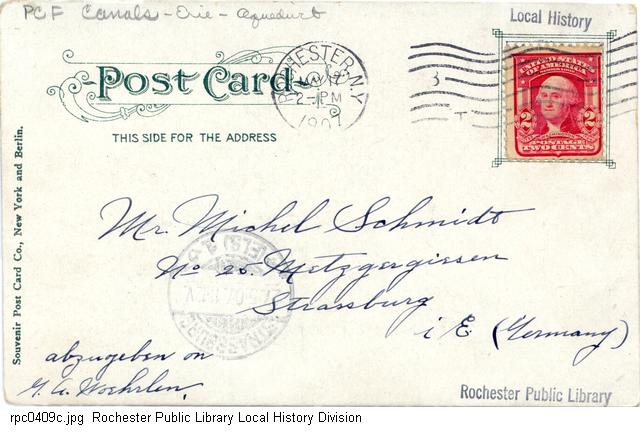 PCF Canals - Erie - Aqueduct
Local History
Post Card
ROCHESTER, N.Y.
2-PM
1907
3
UNITED STATES OF AMERICA
2 2
POSTAGE
TWO CENTS
THIS SIDE FOR THE ADDRESS
Souvenir Post Card Co., New York and Berlin.
Mr. Michel Schmidt
No 25 Metzgergiessen
Strassburg
i E. (Germany)
abzugeben on
Rochester Public Library
rpc0409c.jpg Rochester Public Library Local History Division